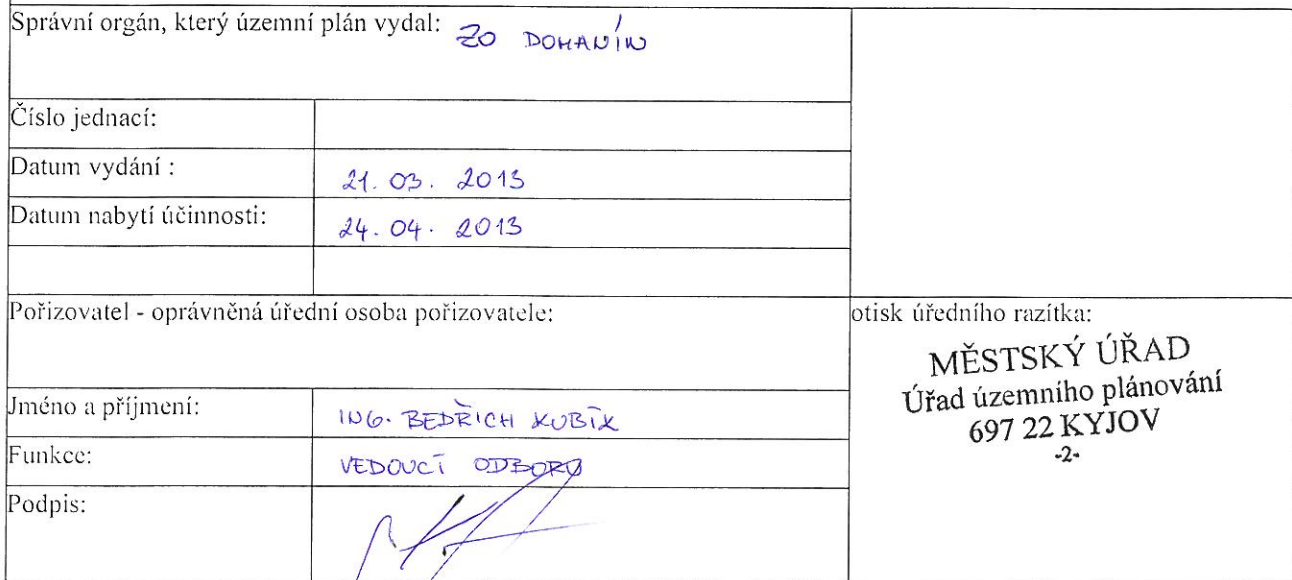 Správní orgán, který územní plán vydal: ZO DOMANÍN
Číslo jednací:
Datum vydání : 21. 03. 2013
Datum nabytí účinnosti: 24. 04. 2013
Pořizovatel - oprávněná úřední osoba pořizovatele:
otisk úředního razítka:
MĚSTSKÝ ÚŘAD
Úřad územního plánování
697 22 KYJOV
-2-
Jméno a příjmení: ING. BEDŘICH KUBÍK
Funkce: VEDOUCÍ ODBORU
Podpis: